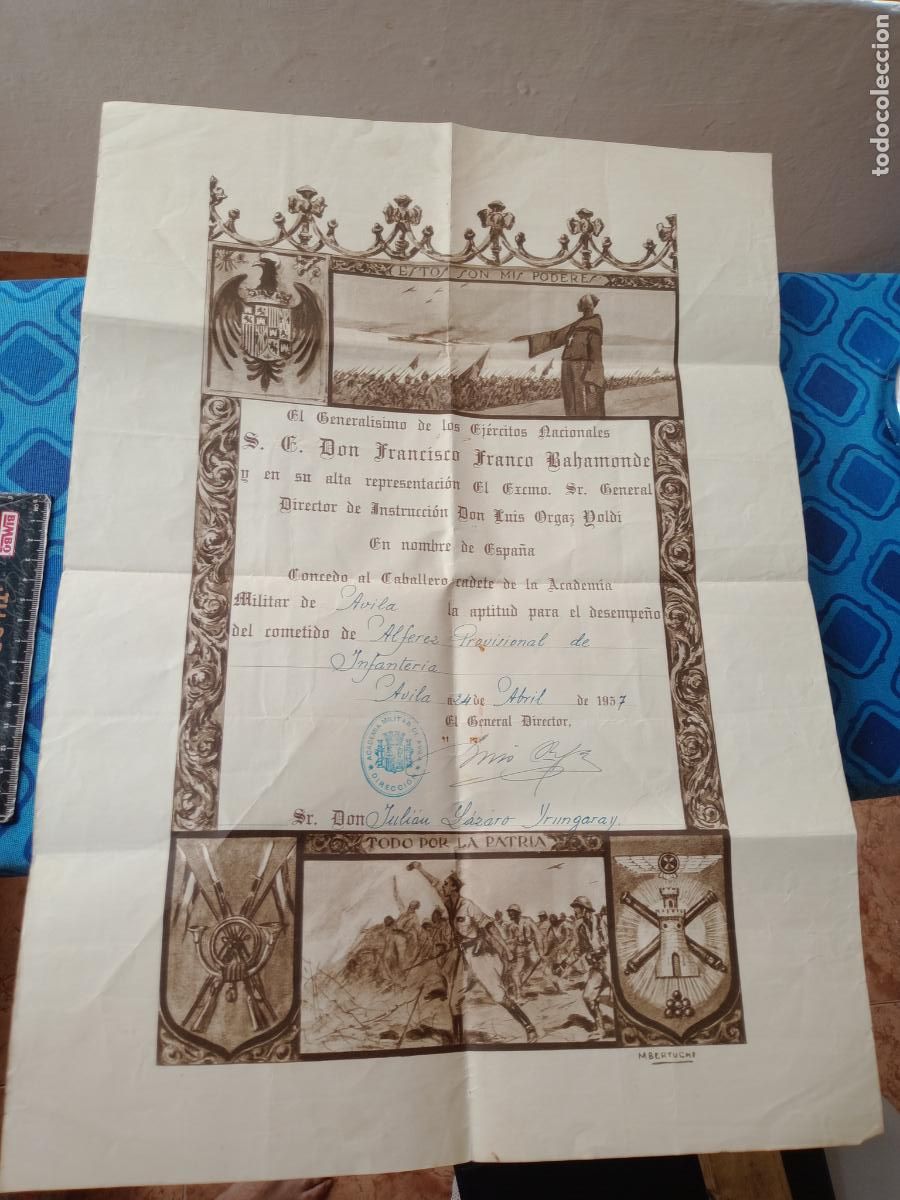 todocoleccion
ESTOS SON MIS PODERES
El Generalísimo de los Ejércitos Nacionales
S. E. Don Francisco Franco Bahamonde
y en su alta representación El Excmo. Sr. General
Director de Instrucción Don Luis Orgaz Yoldi
En nombre de España
Concedo al Caballero cadete de la Academia
Militar de Avila la aptitud para el desempeño
del cometido de Alferez Provisional de
Infanteria
Avila a 24 de Abril de 1937
El General Director,
ACADEMIA MILITAR DE AVILA
DIRECCIÓN
Luis Orgaz
Sr. Don Julián Lázaro Yrungaray.
TODO POR LA PATRIA
M BERTUCHI
BIMBO